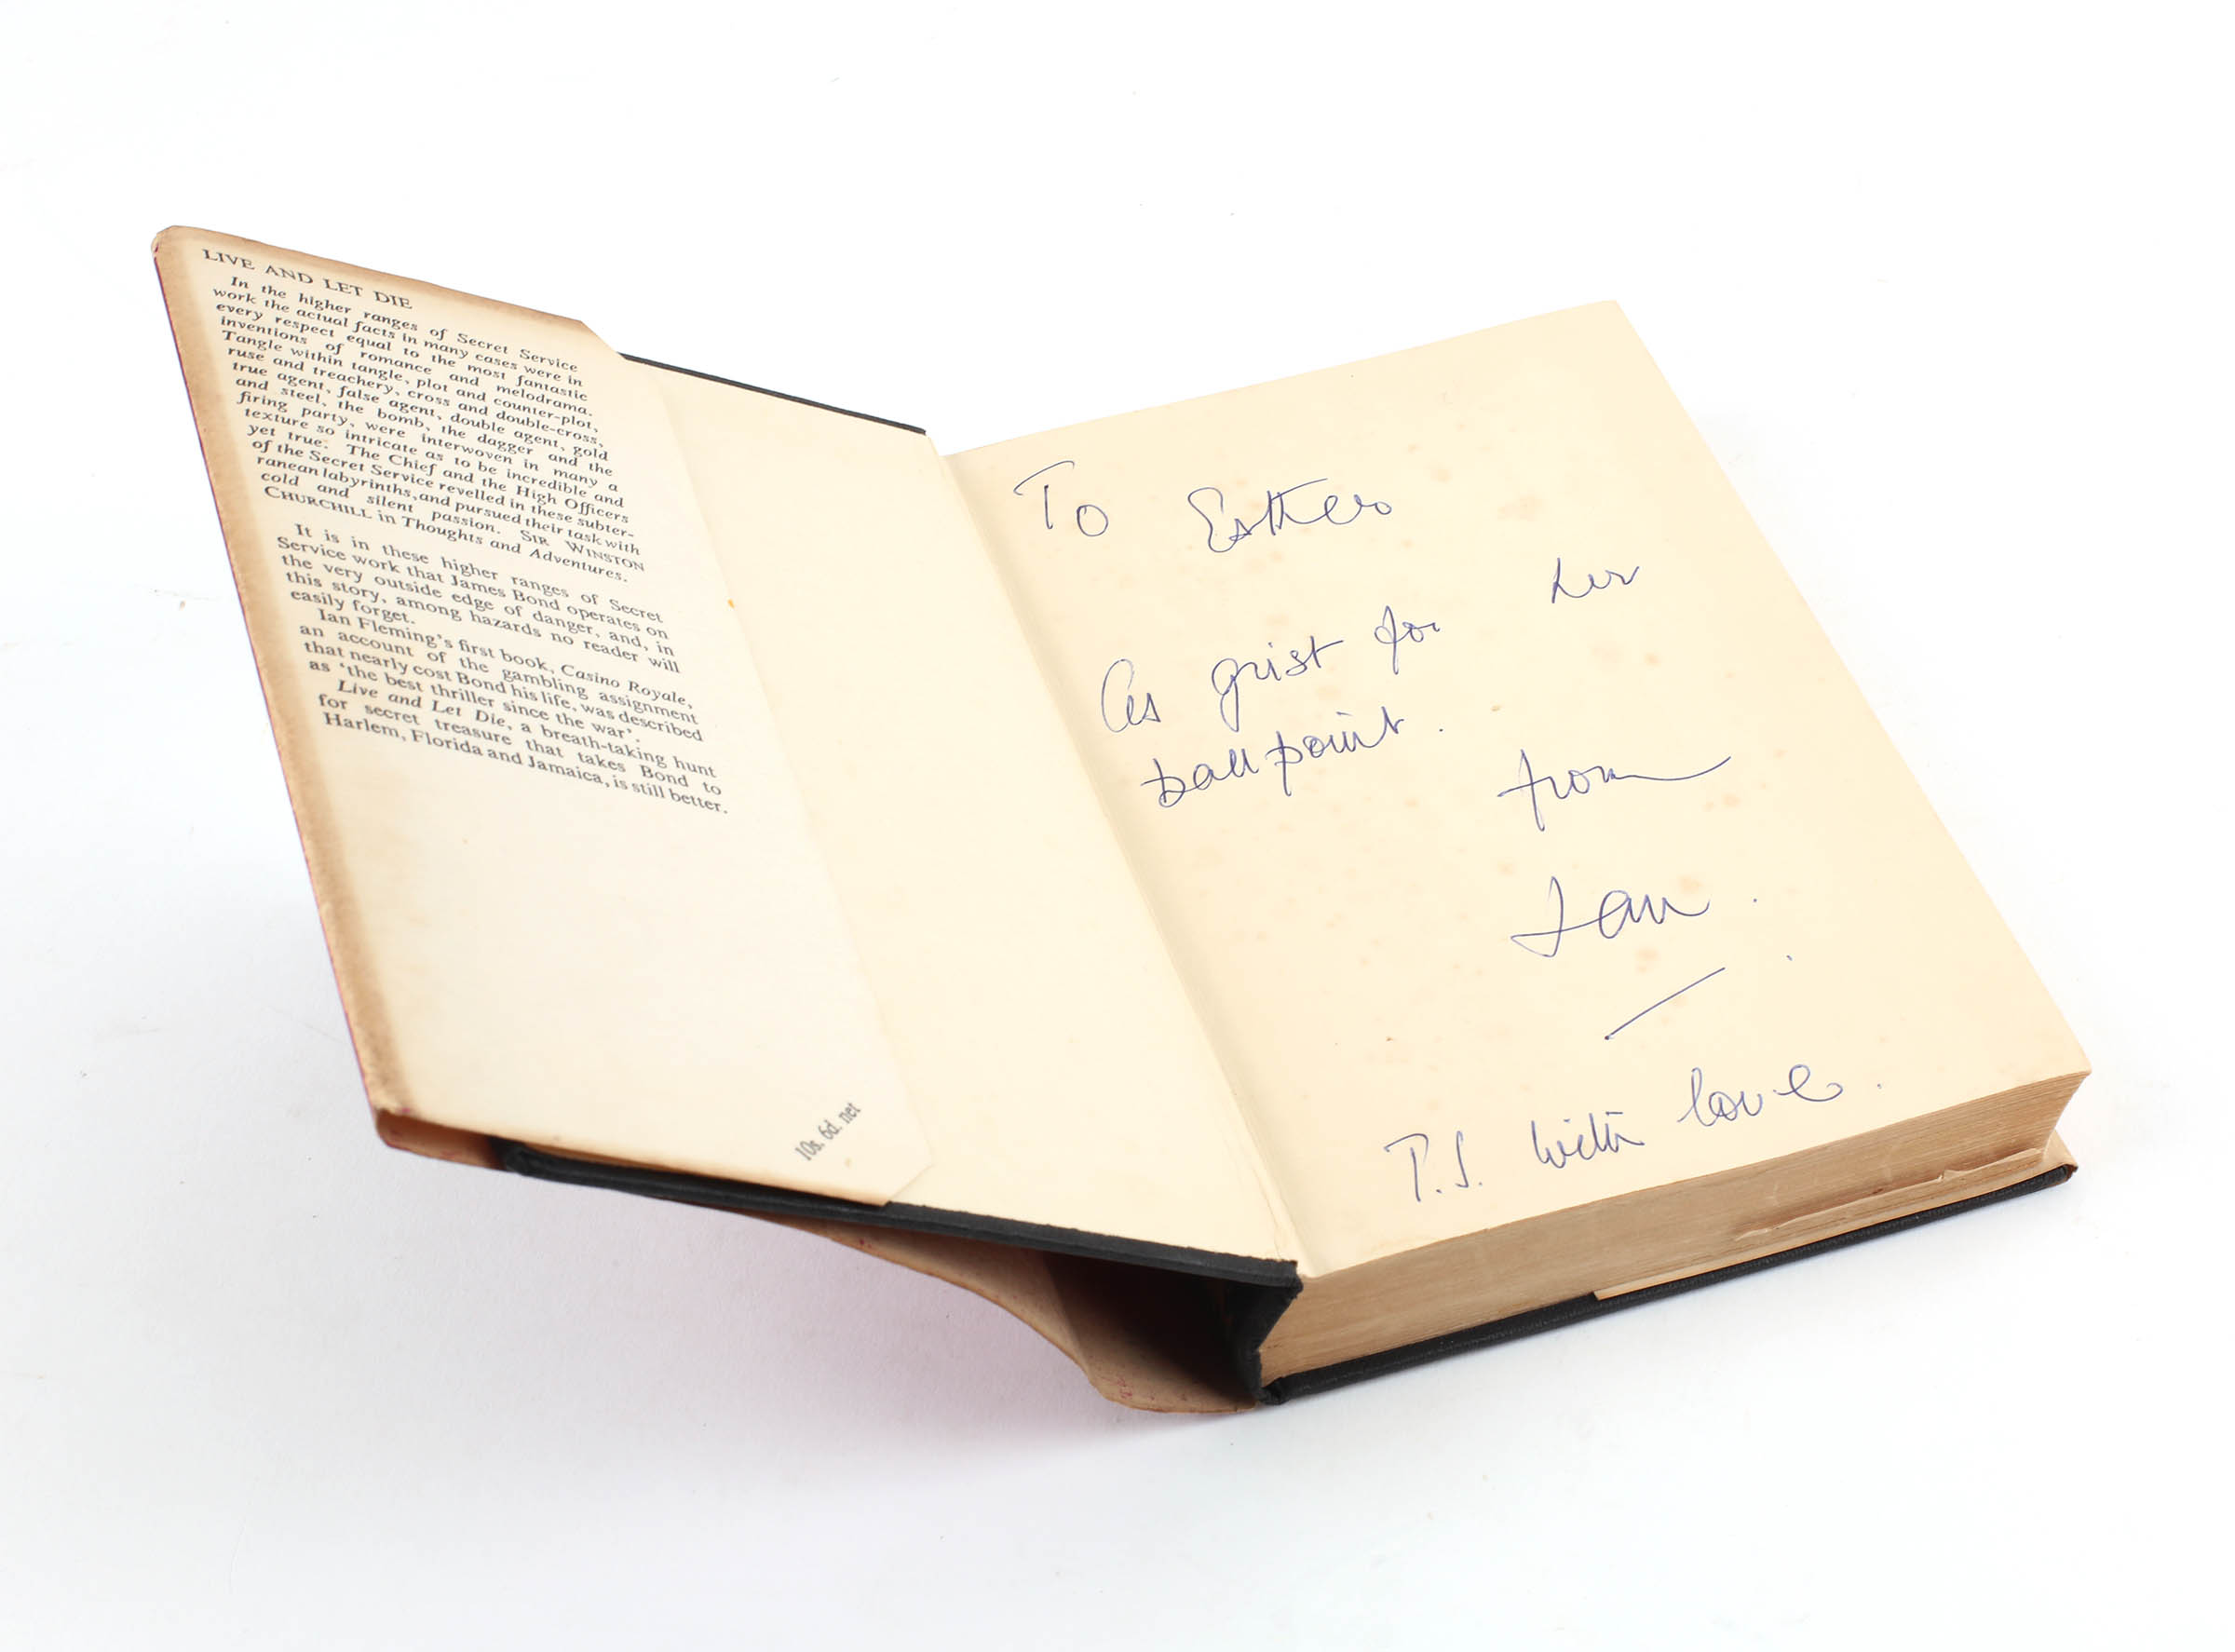 LIVE AND LET DIE
In the higher ranges of Secret Service
work the actual facts in many cases were in
every respect equal to the most fantastic
inventions of romance and melodrama.
Tangle within tangle, plot and counter-plot,
ruse and treachery, cross and double-cross,
true agent, false agent, double agent, gold
and steel, the bomb, the dagger and the
firing party, were interwoven in many a
texture so intricate as to be incredible and
yet true. The Chief and the High Officers
of the Secret Service revelled in these subter-
ranean labyrinths, and pursued their task with
cold and silent passion. SIR WINSTON
CHURCHILL in Thoughts and Adventures.
It is in these higher ranges of Secret
Service work that James Bond operates on
the very outside edge of danger, and, in
this story, among hazards no reader will
easily forget.
Ian Fleming's first book, Casino Royale,
an account of the gambling assignment
that nearly cost Bond his life, was described
as 'the best thriller since the war'.
Live and Let Die, a breath-taking hunt
for secret treasure that takes Bond to
Harlem, Florida and Jamaica, is still better.
10s. 6d. net
To Esther
As grist for her
ballpoint.
from
Ian.
P.S. with love.